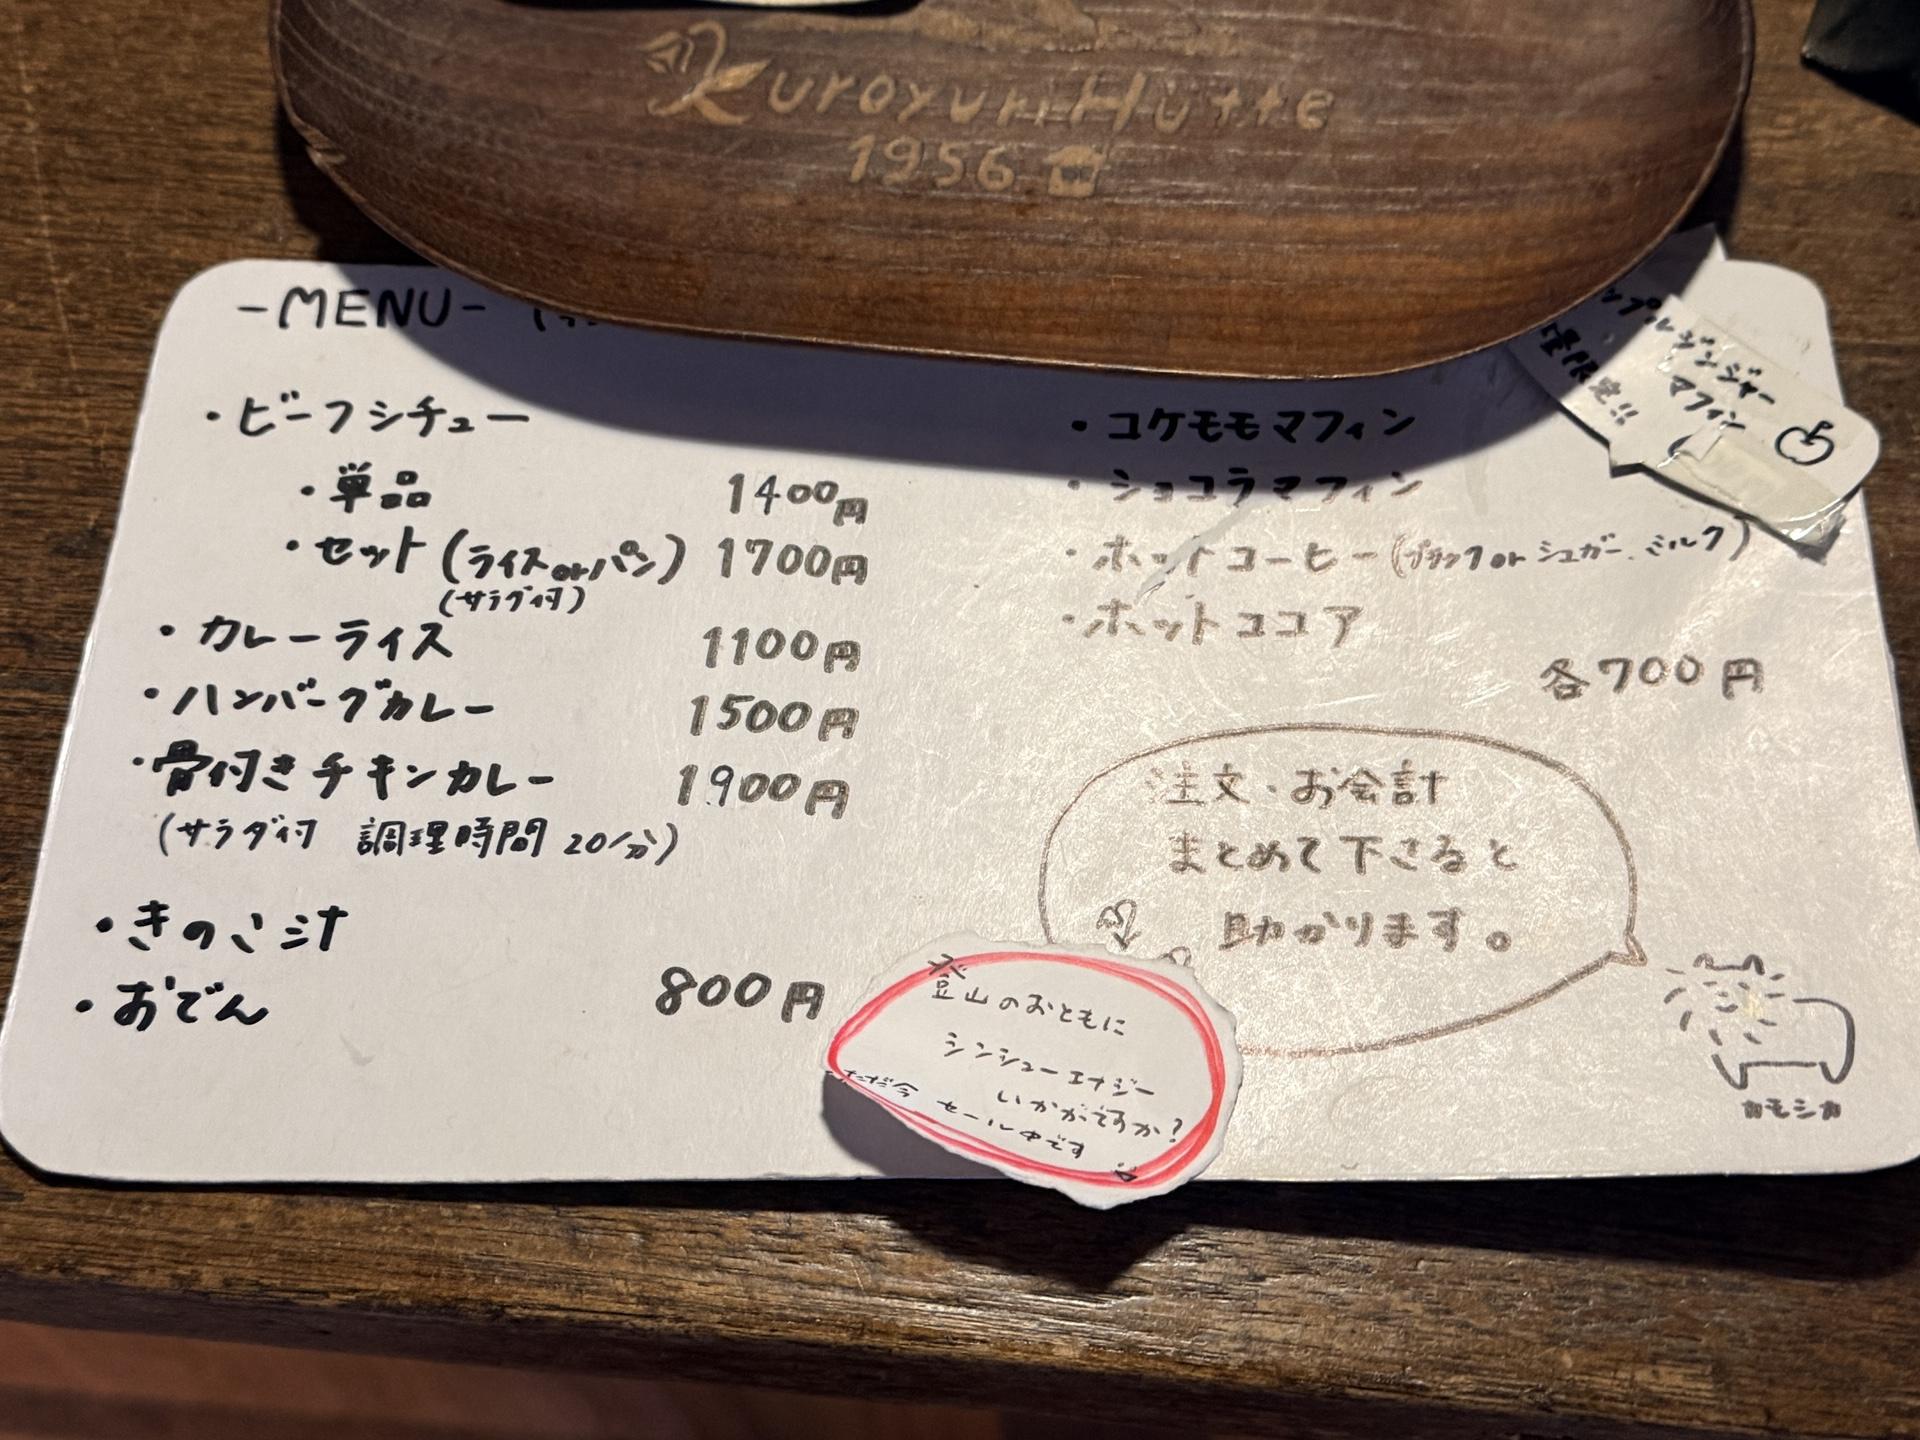 Kuroyuri Hütte
1956
-MENU-
・ビーフシチュー
・単品 1400円
・セット(ライスorパン) 1700円
(サラダ付)
・カレーライス 1100円
・ハンバーグカレー 1500円
・骨付きチキンカレー 1900円
(サラダ付 調理時間 20分)
・きのこ汁
・おでん 800円
・コケモモマフィン
・ショコラマフィン
・ホットコーヒー(ブラック or シュガー、ミルク)
・ホットココア
各700円
ップルジンジャー
マフィン
量限定!!
注文・お会計
まとめて下さると
助かります。
カモシカ
登山のおともに
シンシューエナジー
いかがですか?
ただ今 セール中です